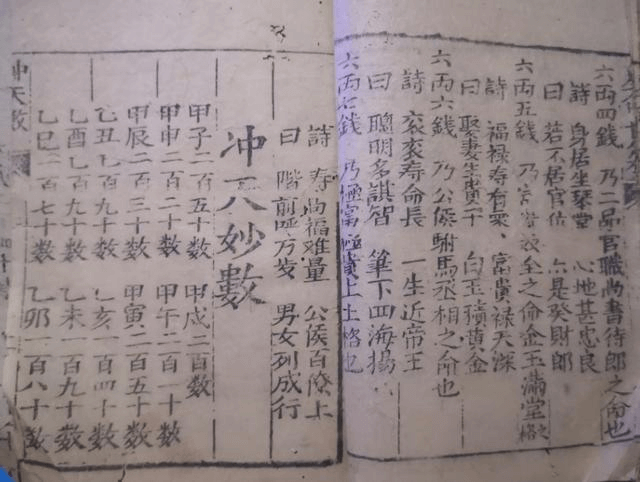 六両四錢 乃一品官職尚書待郎之命也
詩 身居坐琴堂 心地甚忠良
曰 若不居官位 亦是發財郎
六両五錢 乃 之命金玉滿堂之格
詩 福禄寿有衆 富貴禄天深
曰 娶妻生貴子 白玉積黄金
六両六錢 乃公侯駙馬丞相之命也
詩 衮衮寿命長 一生近帝王
曰 聰明多謀智 筆下四海揚
六両七錢 乃極富極貴上上格也
詩 寿尚福难量 公侯百僚上
曰 階前呼万岁 男女列成行
冲天妙數
甲子二百五十數 甲戌二百數
甲申二百二十數 甲午二百一十數
甲辰二百三十數 甲寅二百五十數
乙丑一百九十數 乙亥一百四十數
乙酉一百九十數 乙未一百九十數
乙巳一百七十數 乙卯一百八十數
冲天数